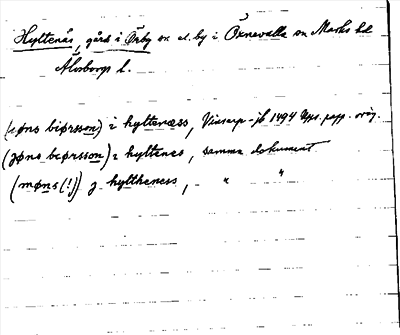 Hyltenäs, gård i Örby sn el. by i Öxnevalla sn Marks hd
Älvsborgs l.
(jøns biørsson) i hyltenæss, Vinsarp-jb 1494 Ups. papp. orig.
(jøns beørsson) i hyltenes, samma dokument
(møns(!)) j hyltheness, " "